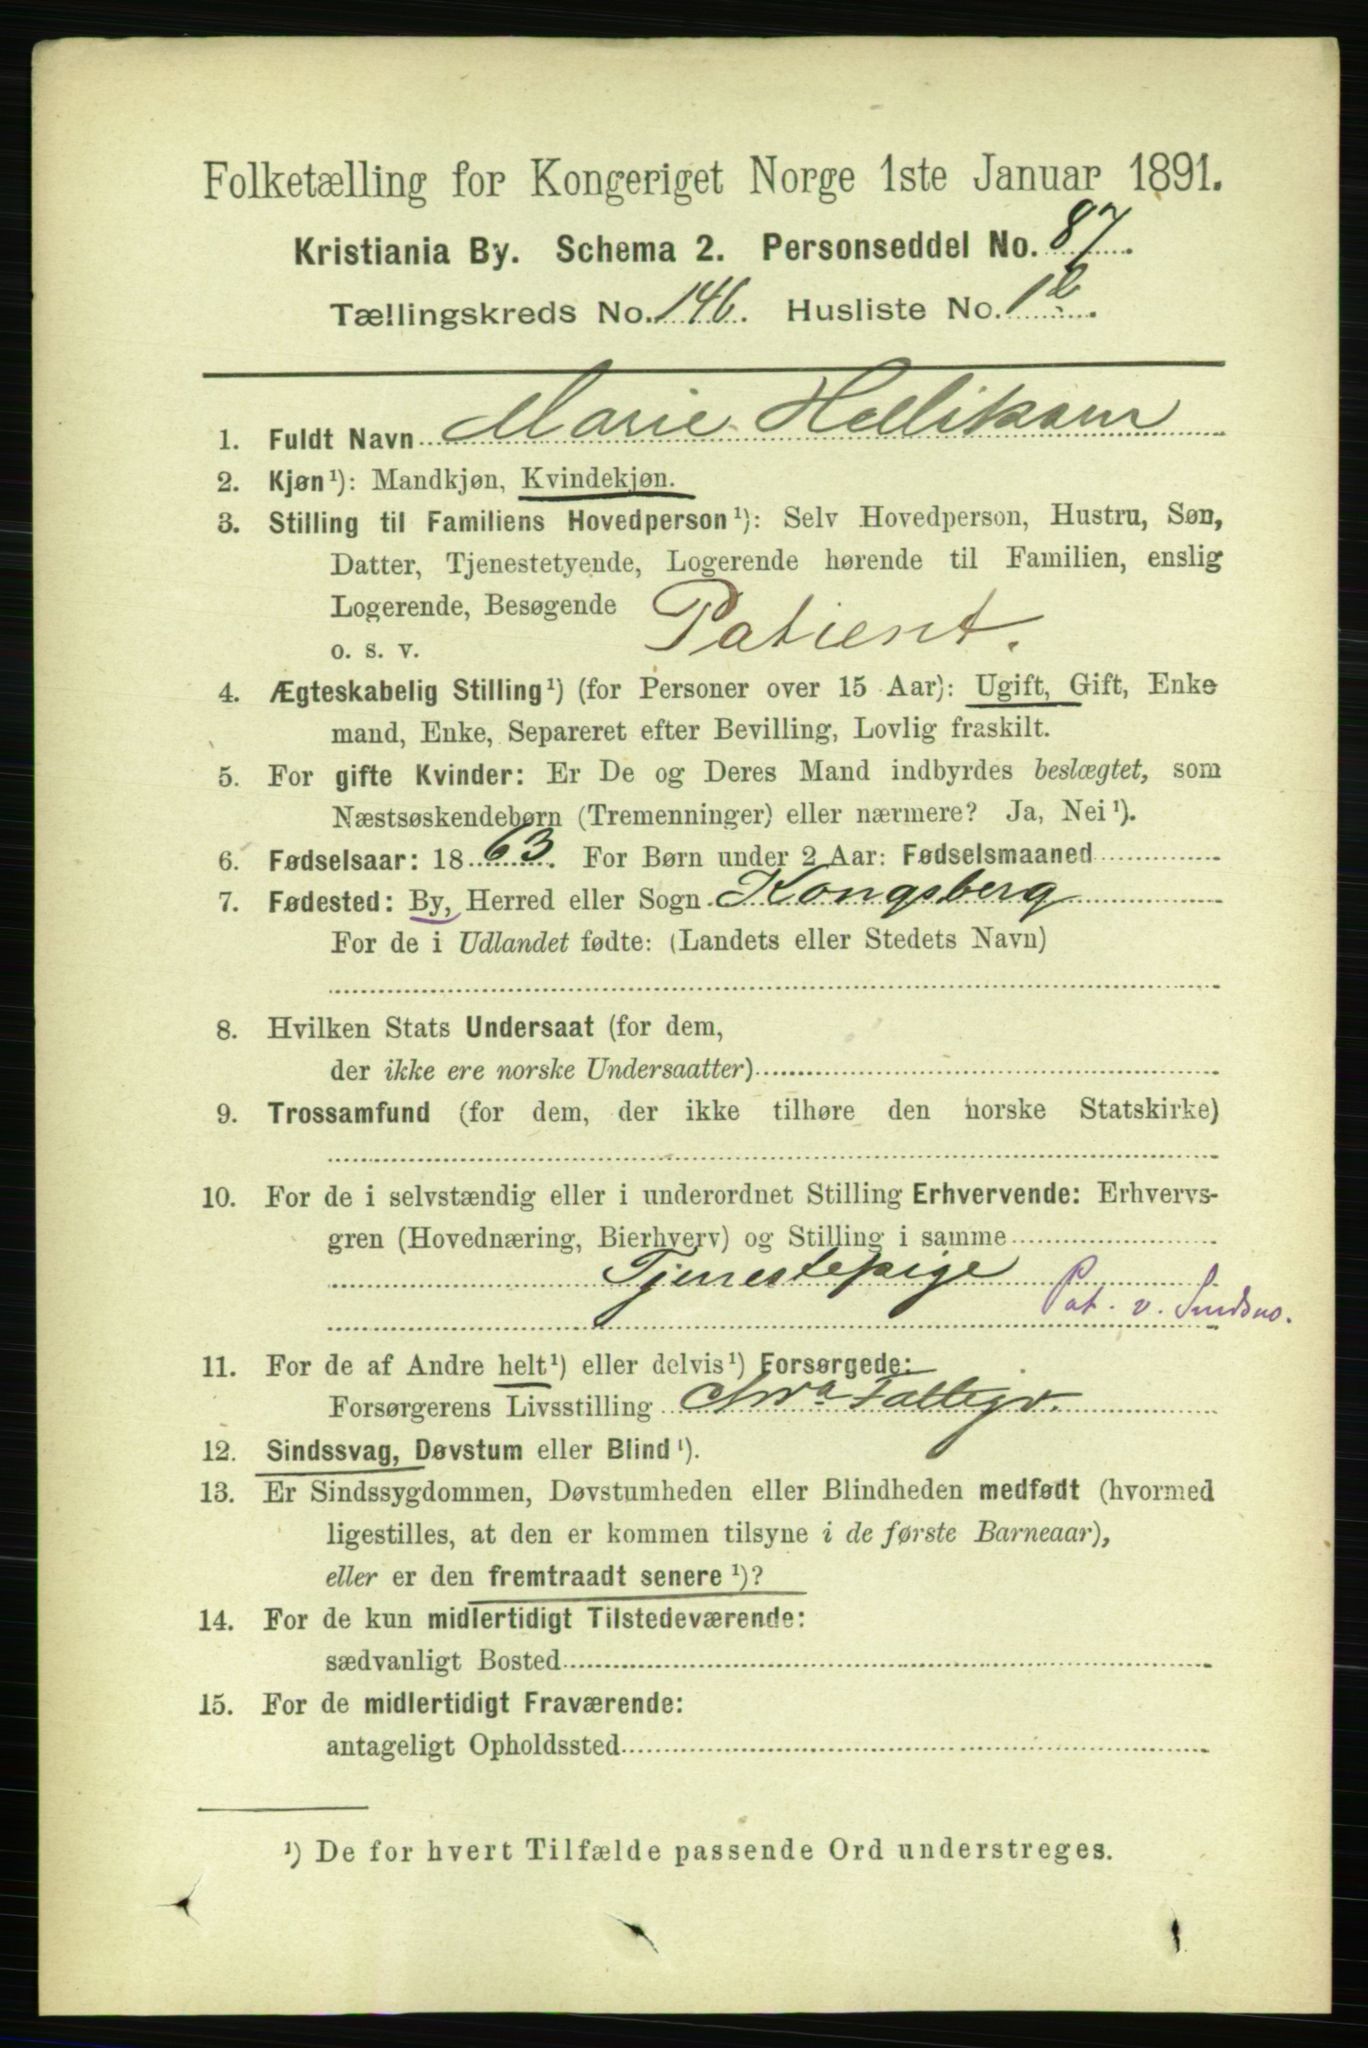 Folketælling for Kongeriget Norge 1ste Januar 1891.
Kristiania By. Schema 2. Personseddel No. 87.
Tællingskreds No. 146. Husliste No. 1b.
1. Fuldt Navn Marie Helliksen
2. Kjøn¹): Mandkjøn, Kvindekjøn.
3. Stilling til Familiens Hovedperson¹): Selv Hovedperson, Hustru, Søn,
Datter, Tjenestetyende, Logerende hørende til Familien, enslig
Logerende, Besøgende Patient.
o. s. v.
4. Ægteskabelig Stilling¹) (for Personer over 15 Aar): Ugift, Gift, Enke
mand, Enke, Separeret efter Bevilling, Lovlig fraskilt.
5. For gifte Kvinder: Er De og Deres Mand indbyrdes beslægtet, som
Næstsøskendebørn (Tremenninger) eller nærmere? Ja, Nei¹).
6. Fødselsaar: 1863. For Børn under 2 Aar: Fødselsmaaned
7. Fødested: By, Herred eller Sogn Kongsberg
For de i Udlandet fødte: (Landets eller Stedets Navn)
8. Hvilken Stats Undersaat (for dem,
der ikke ere norske Undersaatter)
9. Trossamfund (for dem, der ikke tilhøre den norske Statskirke)
10. For de i selvstændig eller i underordnet Stilling Erhvervende: Erhvervs-
gren (Hovednæring, Bierhverv) og Stilling i samme
Tjenestepige
Pat. v.
11. For de af Andre helt¹) eller delvis¹) Forsørgede:
Forsørgerens Livsstilling Chra Fattigv.
12. Sindssvag, Døvstum eller Blind¹).
13. Er Sindssygdommen, Døvstumheden eller Blindheden medfødt (hvormed
ligestilles, at den er kommen tilsyne i de første Barneaar),
eller er den fremtraadt senere¹)?
14. For de kun midlertidigt Tilstedeværende:
sædvanligt Bosted
15. For de midlertidigt Fraværende:
antageligt Opholdssted
¹) De for hvert Tilfælde passende Ord understreges.